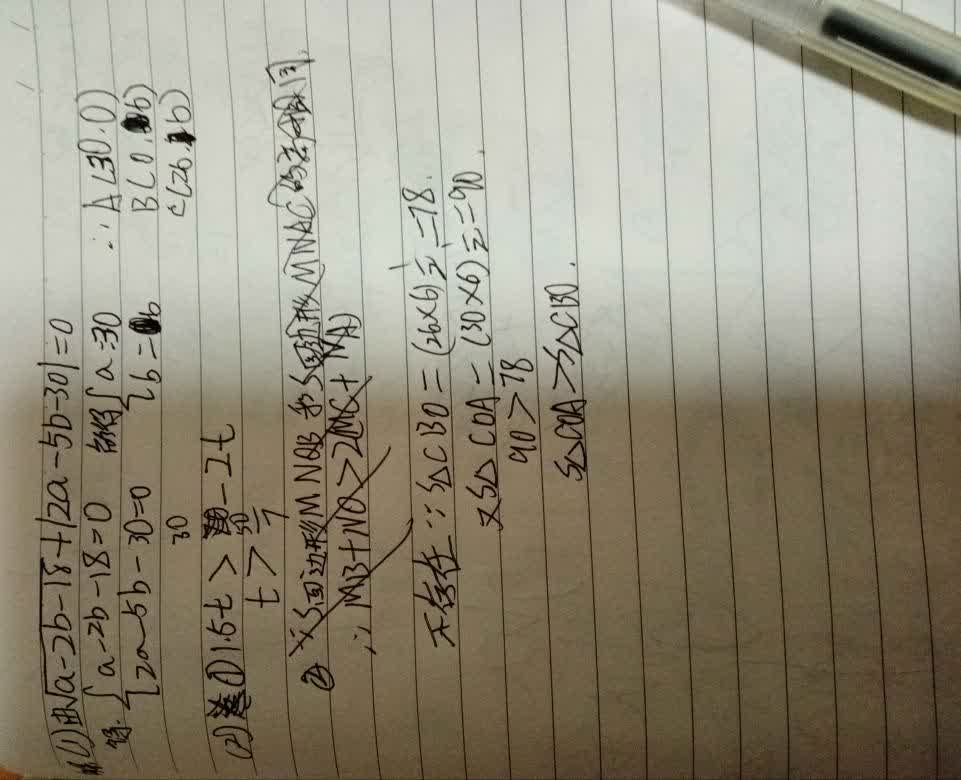 (1)由√a-2b-18+|2a-5b-30|=0
得.{a-2b-18=0 解得{a=30 ∴A(30.0)
{2a-5b-30=0 {b=6 B(0.6)
C(26.6)
(2)①1.5t>30-2t
t>50/7
② S四边形MNOB S四边形MNAC
∴MB+NO>2(MC+NA)
不存在∵S△CBO=(26×6)½=78.
又S△COA=(30×6)½=90.
90>78
S△COA>S△CBO.